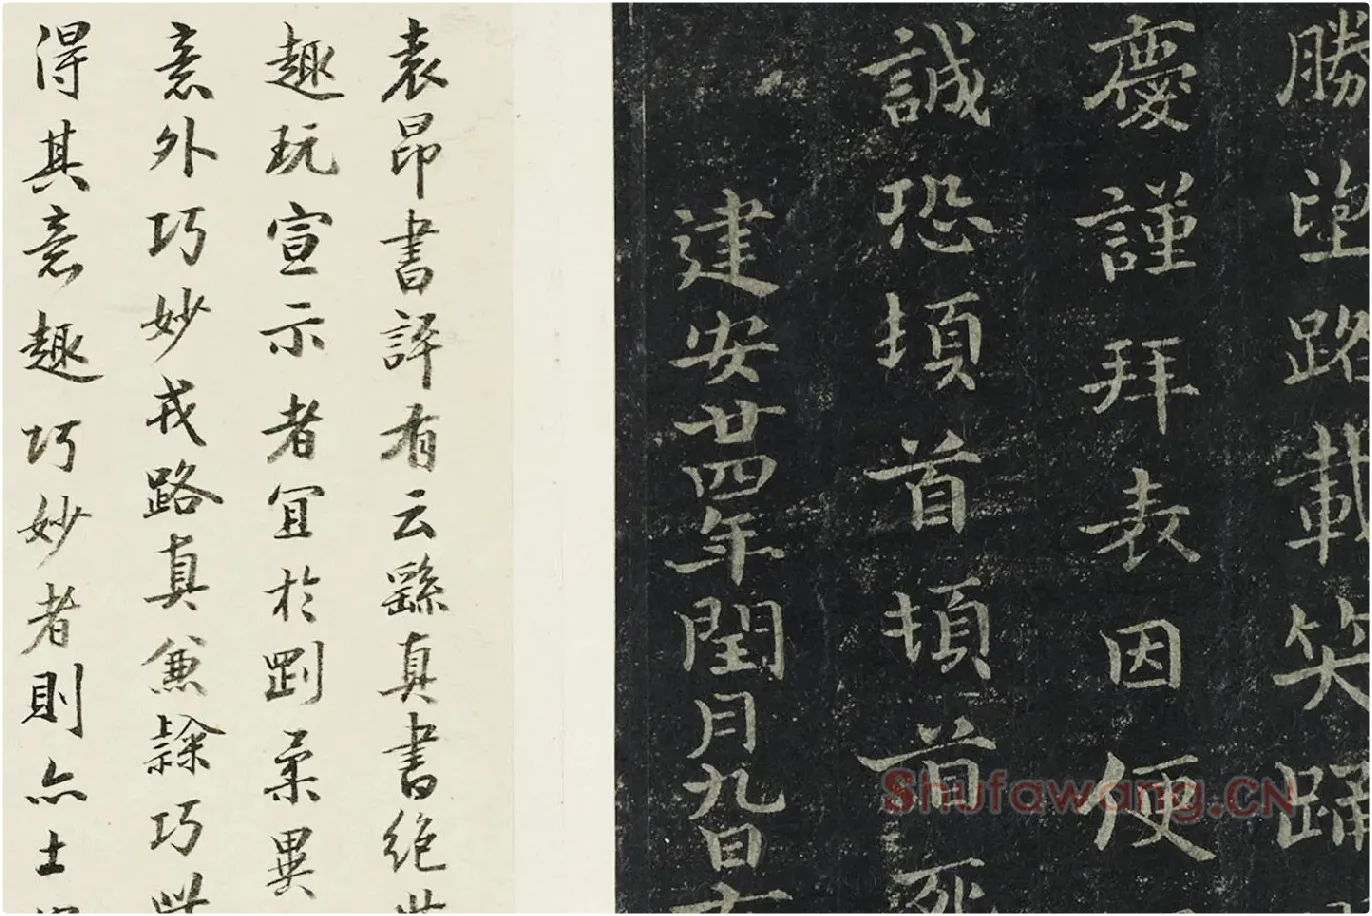 勝望路載笑踊
慶謹拜表因便
誠恐頓首頓首死
建安廿四年閏月九日
袁昂書評有云繇真書絕世
趣玩宣示者宜於剛柔異
意外巧妙戎路真兼隸巧
得其意趣巧妙者則亦士
Shufawang.CN